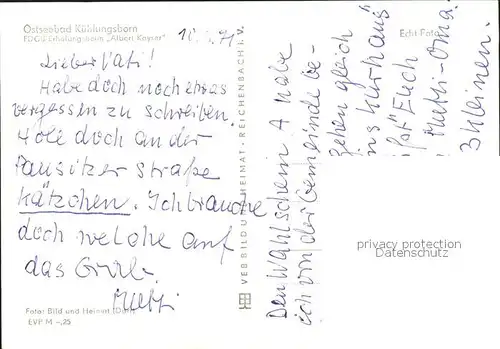 Ostseebad Kühlungsborn
FDGB-Erholungsheim „Albert Kayser"
10. 71
Lieber Vati!
Habe doch noch etwas
vergessen zu schreiben.
Hole doch an der
Pausitzer Straße
Kätzchen. Ich brauche
doch welche auf
das Grab.
Mutti
Foto: Bild und Heimat
EVP M -,25
VEB BILD UND HEIMAT · REICHENBACH I. V.
Echt Foto
Den Wahlschein A habe
ich von der Gemeinde be-
gehen gleich
ins Kurhaus
Euch
Mutti-Oma.
3 kleinen.
privacy protection
Datenschutz